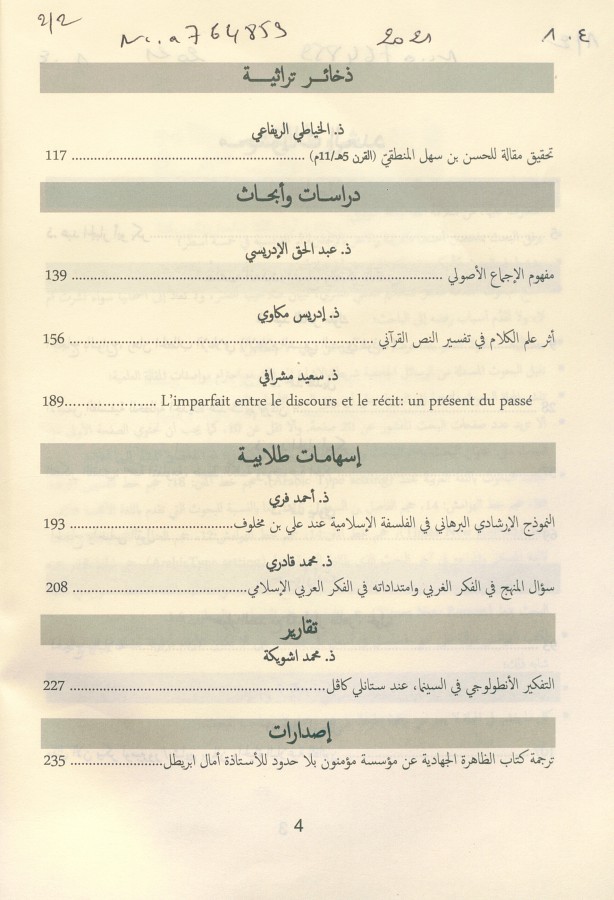 2/2 Nc.a764853 2021 A.٤
ذخائر تراثية
ذ. الخياطي الريفاعي
تحقيق مقالة للحسن بن سهل المنطقيّ (القرن 5هـ/11م) ........ 117
دراسات وأبحاث
ذ. عبد الحق الإدريسي
مفهوم الإجماع الأصولي ........ 139
ذ. إدريس مكاوي
أثر علم الكلام في تفسير النص القرآني ........ 156
ذ. سعيد مشرافي
189.................... L'imparfait entre le discours et le récit: un présent du passé
إسهامات طلابية
ذ. أحمد فري
النموذج الإرشادي البرهاني في الفلسفة الإسلامية عند علي بن مخلوف........ 193
ذ. محمد قادري
سؤال المنهج في الفكر الغربي وامتداداته في الفكر العربي الإسلامي........ 208
تقارير
ذ. محمد اشويكة
التفكير الأنطولوجي في السينما، عند ستانلي كاڤل........ 227
إصدارات
ترجمة كتاب الظاهرة الجهادية عن مؤسسة مؤمنون بلا حدود للأستاذة أمال ابريطل........ 235
4